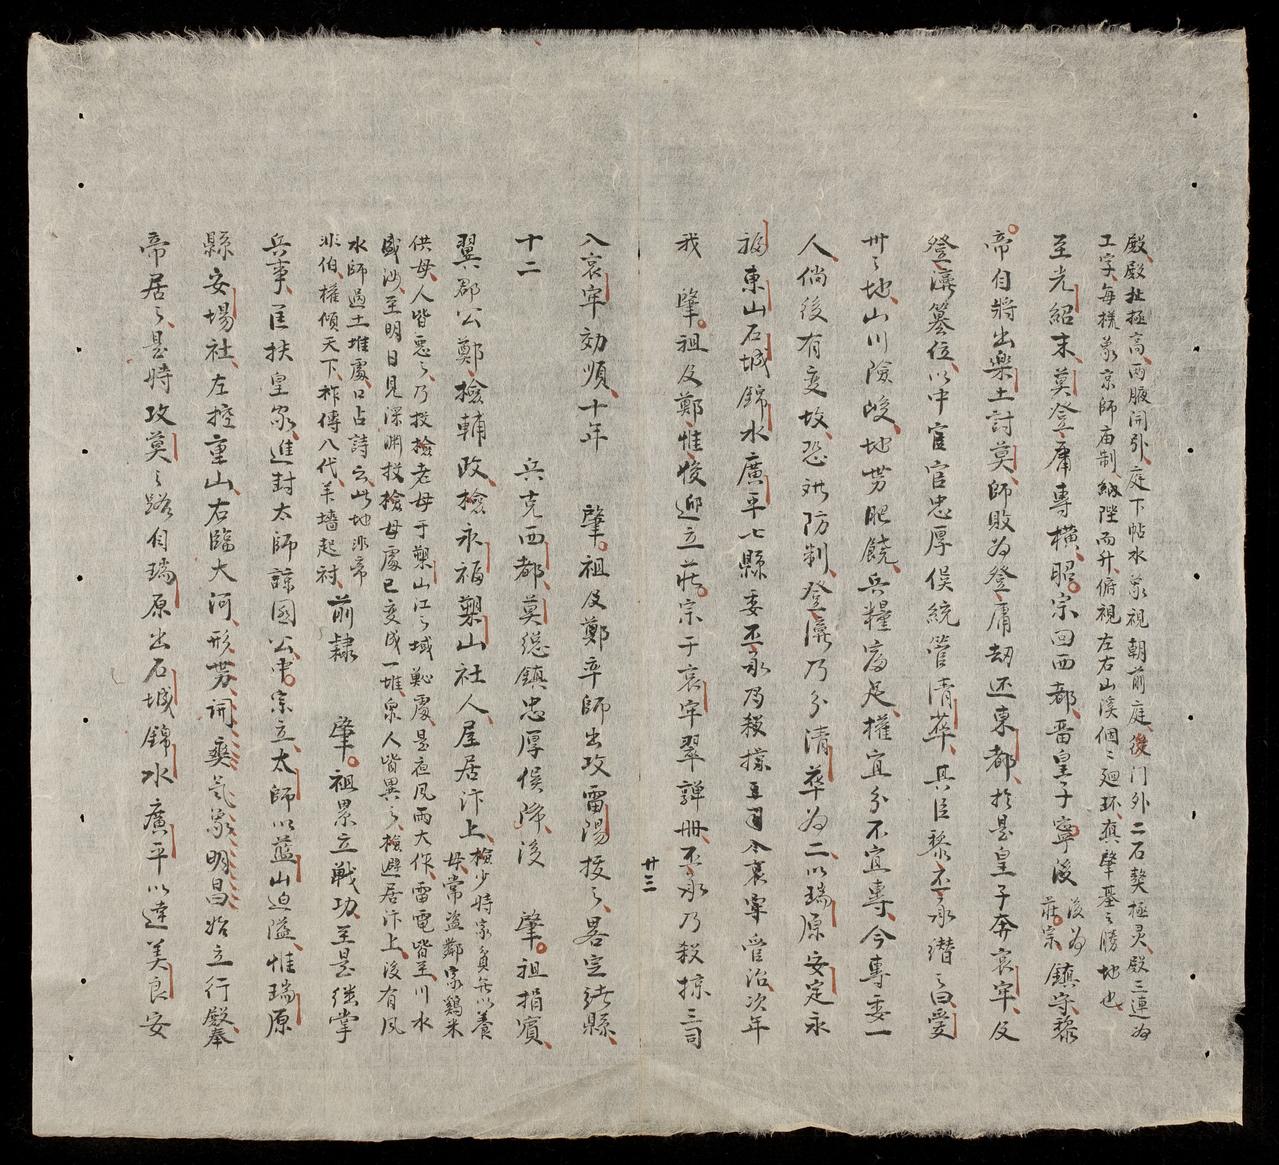 殿殿扯極高、两腋開引、庭下帖水、象視朝前庭、後门外二石獒極灵、殿三連為
工字、每桄、象京師庙制、紩陛而升、俯視左右山溪個〻廻环、真肇基之勝地也、
至光紹末、莫登庸專横、昭宗回西都、畱皇子寧、後 後為莊宗 鎮守黎
帝自將出樂土討莫、師敗為登庸劫还東都、於是皇子奔哀牢、及
登瀛篡位、以中官官忠厚侯統管清華、其臣黎丕承潜之曰、愛
卅之地、山川險峻、地势肥饒、兵糧富足、權宜分不宜專、今專委一
人、倘後有变故、恐难防制、登瀛乃分清華為二、以瑞原安定永
福東山石城錦水廣平七縣委丕承乃殺掾三司令哀牢管治、次年
我 肇祖及鄭惟悛迎立莊宗于哀牢翠蟬冊、丕承乃殺掠三司
廿三
入哀牢効順、十年 肇祖及鄭率師出攻雷陽拔之、畧定諸縣、
十二 兵克西都、莫総鎮忠厚侯降、後 肇祖捐賓、
翼郡公鄭檢輔政、檢永福槊山社人、屋居汴上、檢少時家貧無以養母、常盗鄰家鷄米
供母、人皆恶之、乃投檢老母于槊山江之域慙處、是夜风雨大作、雷電皆至、川水
盛沟、至明日見深渊投檢母處已变成一堆、泉人皆異之、檢避居汴上、後有风
水師過土堆處、口占詩云、此地非帝
非伯、權傾天下、祚傳八代、羊墻起衬、前隸 肇祖累立战功、至是継掌
兵事、匡扶皇家、進封太師諒国公、中宗立、太師以藍山迫溢、惟瑞原
縣安場社、左控重山、右臨大河、形势開爽、氣象明昌、始立行殿奉
帝居之、是時攻莫之路、自瑞原出石城錦水廣平以達美良安